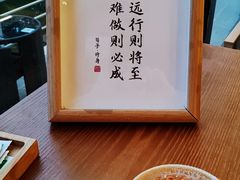 远行则将至
难做则必成
荀子·修身